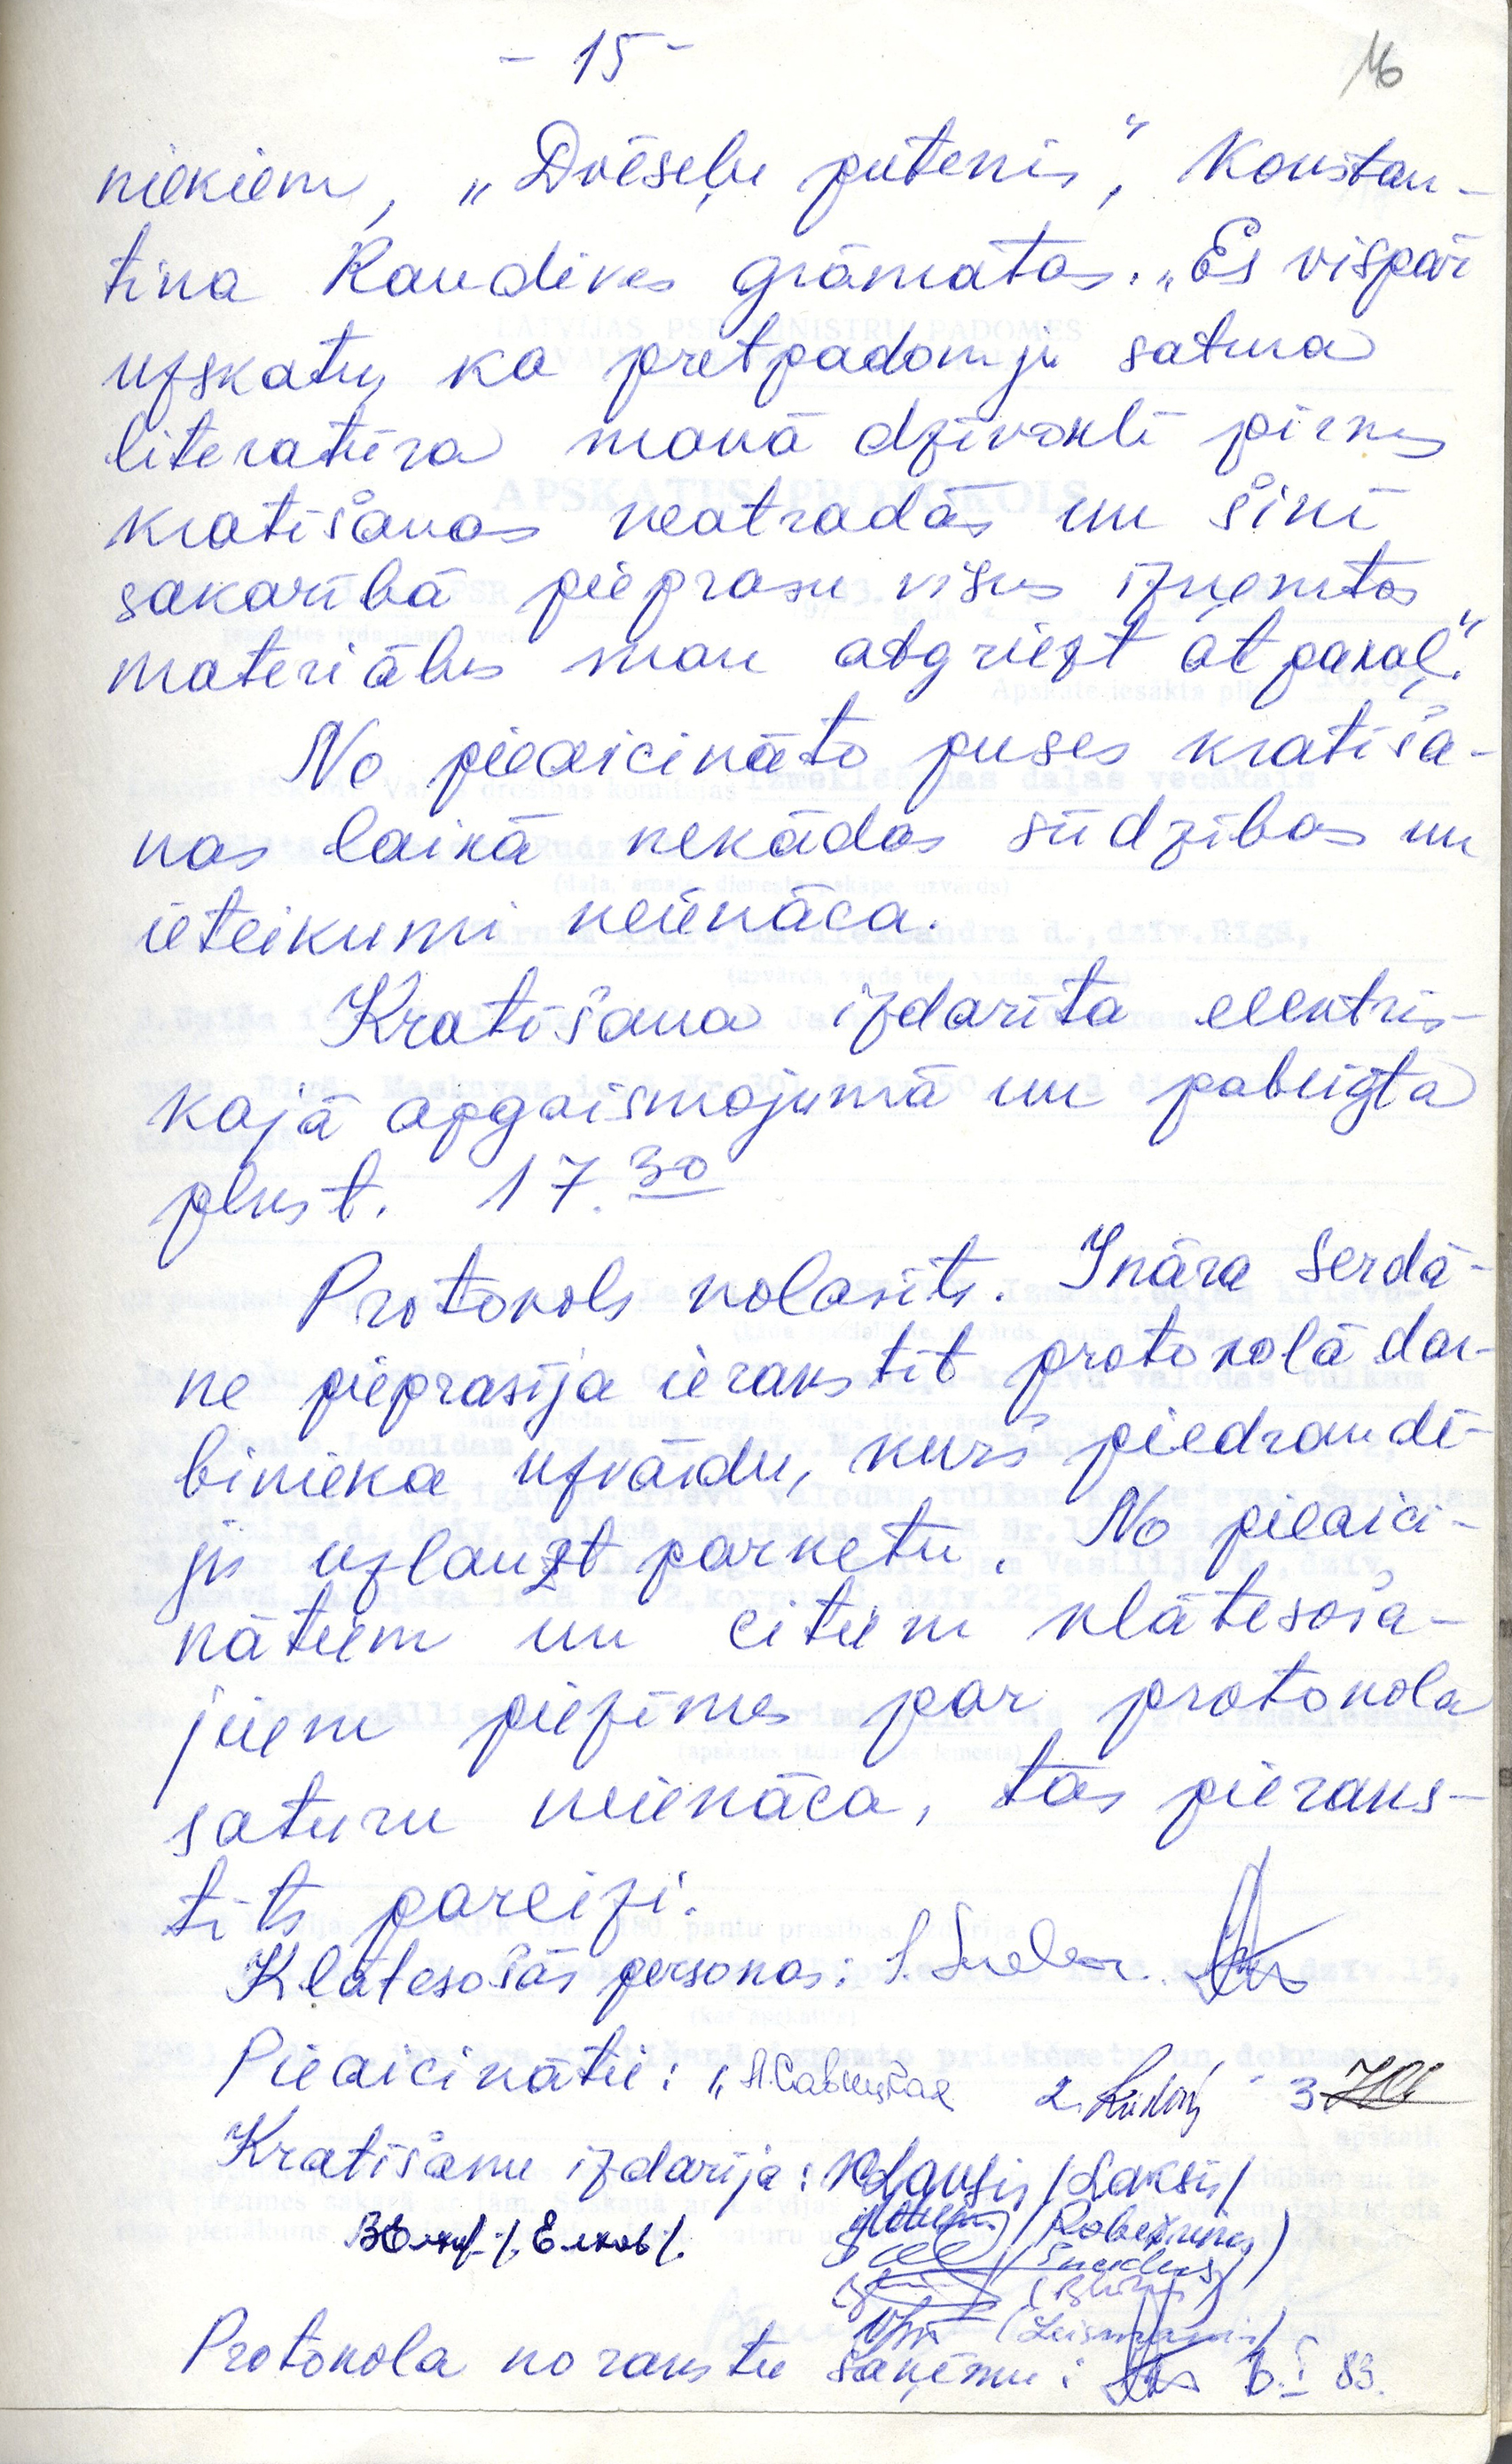 - 15 -
16
niekiem, „Dvēseļu putenis", Konstan-
tina Raudives grāmatas. „Es vispār
uzskatu, ka pretpadomju satura
literatūra manā dzīvoklī pirms
kratīšanas neatradās un šinī
sakarībā pieprasu visus izņemtos
materiālus man atgriezt atpakaļ."
No pieaicināto puses kratīša-
nas laikā nekādas sūdzības un
ieteikumi neienāca.
Kratīšana izdarīta elektris-
kajā apgaismojumā un pabeigta
plkst. 17.30
Protokols nolasīts. Ināra Serdā-
ne pieprasīja ierakstīt protokolā dar-
binieka uzvārdu, kurš piedraudē-
ja uzlauzt parketu. No pieaici-
nātiem un citiem klātesoša-
jiem piezīmes par protokola
saturu neienāca, tas pieraks-
tīts pareizi.
Klātesošās personas:
Pieaicinātie: 1. Л.Савицкая 2. 3.
Kratīšanu izdarīja: /Laksis/
/Елков/.
Protokola norakstu saņēmu: 6.I 83.